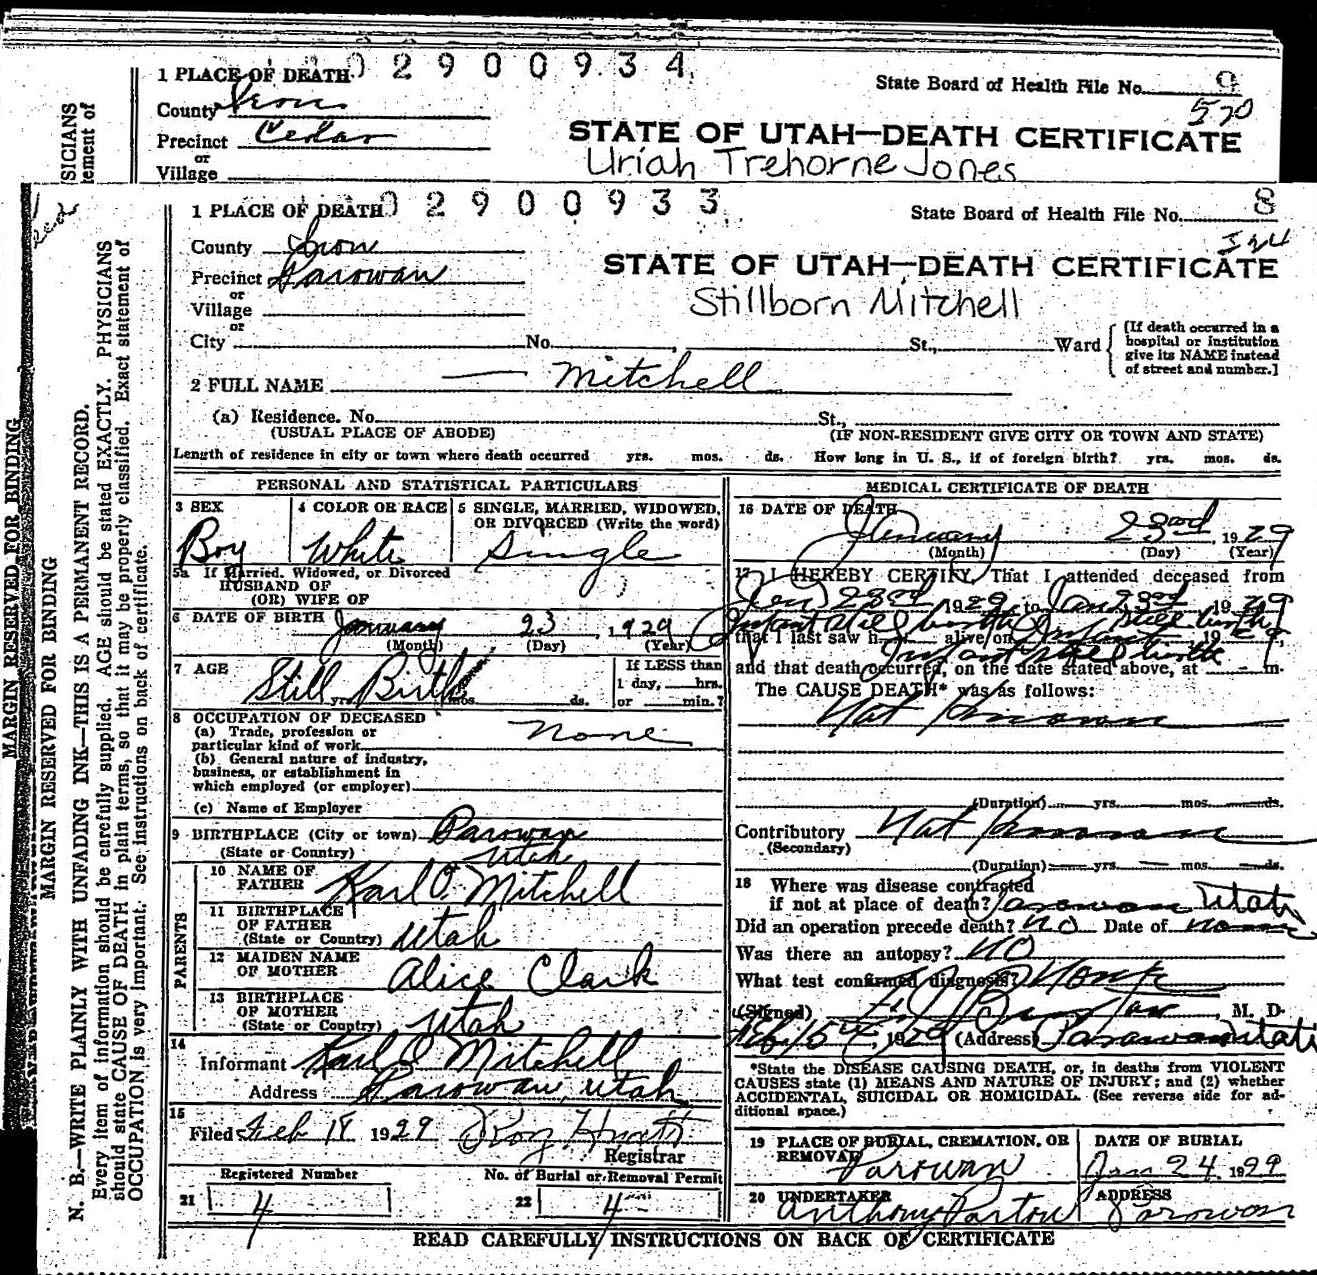 1 PLACE OF DEATH 0 2 9 0 0 9 3 4
State Board of Health File No. 9
570
County Iron
Precinct Cedar
STATE OF UTAH—DEATH CERTIFICATE
or
Village
Uriah Trehorne Jones
SICIANS
tement of
1 PLACE OF DEATH 0 2 9 0 0 9 3 3
State Board of Health File No. 8
County Iron
Precinct Parowan
STATE OF UTAH—DEATH CERTIFICATE
or
Village
Stillborn Mitchell
or
City No. , St., Ward
[If death occurred in a
hospital or institution
give its NAME instead
of street and number.]
2 FULL NAME — Mitchell
(a) Residence. No. St.,
(USUAL PLACE OF ABODE) (IF NON-RESIDENT GIVE CITY OR TOWN AND STATE)
Length of residence in city or town where death occurred yrs. mos. ds. How long in U. S., if of foreign birth? yrs. mos. ds.
PERSONAL AND STATISTICAL PARTICULARS
3 SEX 4 COLOR OR RACE 5 SINGLE, MARRIED, WIDOWED,
OR DIVORCED (Write the word)
Boy White Single
5a If Married, Widowed, or Divorced
HUSBAND OF
(OR) WIFE OF
6 DATE OF BIRTH January 23, 1929
(Month) (Day) (Year)
7 AGE Still Birth
yrs. mos. ds.
If LESS than
1 day, hrs.
or min.?
8 OCCUPATION OF DECEASED
(a) Trade, profession or
particular kind of work None
(b) General nature of industry,
business, or establishment in
which employed (or employer)
(c) Name of Employer
9 BIRTHPLACE (City or town) Parowan
(State or Country) Utah
PARENTS
10 NAME OF
FATHER Karl O. Mitchell
11 BIRTHPLACE
OF FATHER
(State or Country) Utah
12 MAIDEN NAME
OF MOTHER Alice Clark
13 BIRTHPLACE
OF MOTHER
(State or Country) Utah
14
Informant Karl O Mitchell
Address Parowan, Utah
15
Filed Feb 18 1929
Registrar
Registered Number No. of Burial or Removal Permit
21 4 22 4
MEDICAL CERTIFICATE OF DEATH
16 DATE OF DEATH January 23rd, 1929
(Month) (Day) (Year)
17 I HEREBY CERTIFY, That I attended deceased from
Jan 23rd, 1929 to Jan 23rd 1929
Infant Still birth Infant Still birth
that I last saw h alive on 192
Infant still birth
and that death occurred, on the date stated above, at m.
The CAUSE DEATH* was as follows:
Not Known
(Duration) yrs. mos. ds.
Contributory Not Known
(Secondary)
(Duration) yrs. mos. ds.
18 Where was disease contracted
if not at place of death? Parowan Utah
Did an operation precede death? NO Date of none
Was there an autopsy? NO
What test confirmed diagnosis? None
(Signed) , M. D.
Feb 15th, 1929 (Address) Parowan Utah
*State the DISEASE CAUSING DEATH, or, in deaths from VIOLENT
CAUSES state (1) MEANS AND NATURE OF INJURY; and (2) whether
ACCIDENTAL, SUICIDAL OR HOMICIDAL. (See reverse side for ad-
ditional space.)
19 PLACE OF BURIAL, CREMATION, OR
REMOVAL
Parowan
DATE OF BURIAL
Jan 24, 1929
20 UNDERTAKER
Anthony Parton
ADDRESS
Parowan
READ CAREFULLY INSTRUCTIONS ON BACK OF CERTIFICATE
MARGIN RESERVED FOR BINDING
MARGIN RESERVED FOR BINDING
N. B.—WRITE PLAINLY WITH UNFADING INK—THIS IS A PERMANENT RECORD.
Every item of information should be carefully supplied. AGE should be stated EXACTLY. PHYSICIANS
should state CAUSE OF DEATH in plain terms, so that it may be properly classified. Exact statement of
OCCUPATION is very important. See instructions on back of certificate.